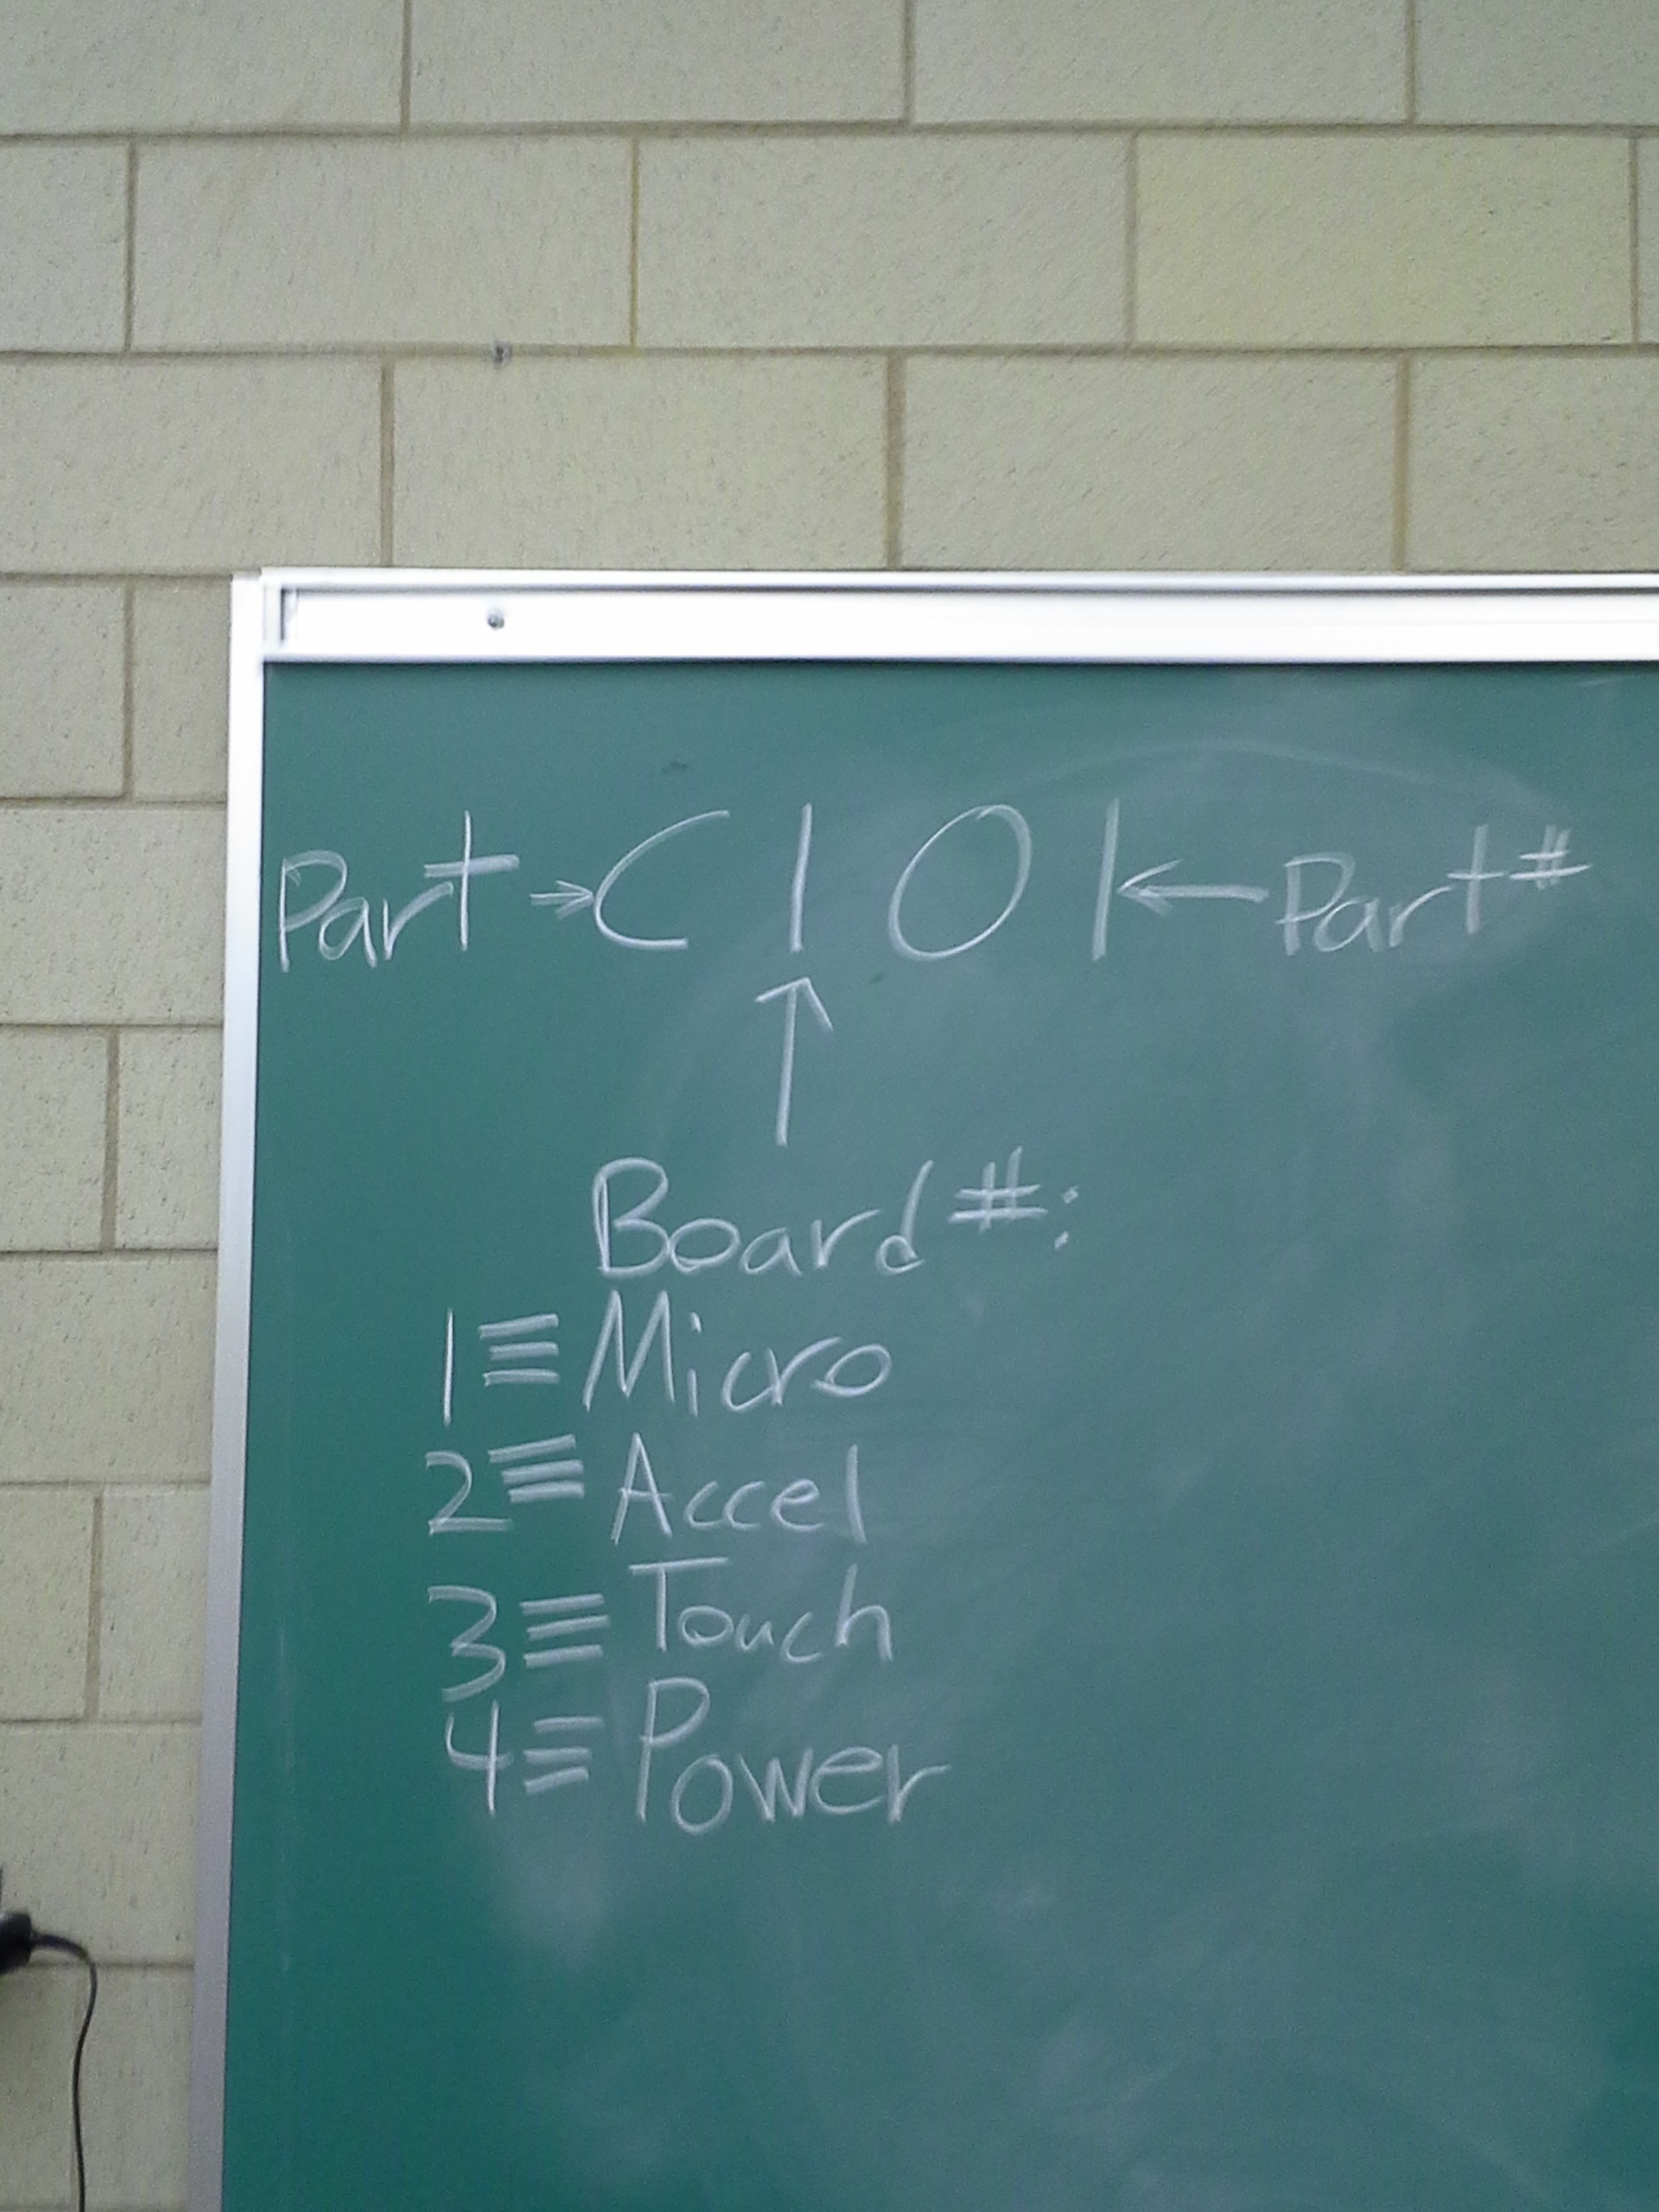 Part → C 1 0 1 ← Part #
↑
Board #:
1 ≡ Micro
2 ≡ Accel
3 ≡ Touch
4 ≡ Power